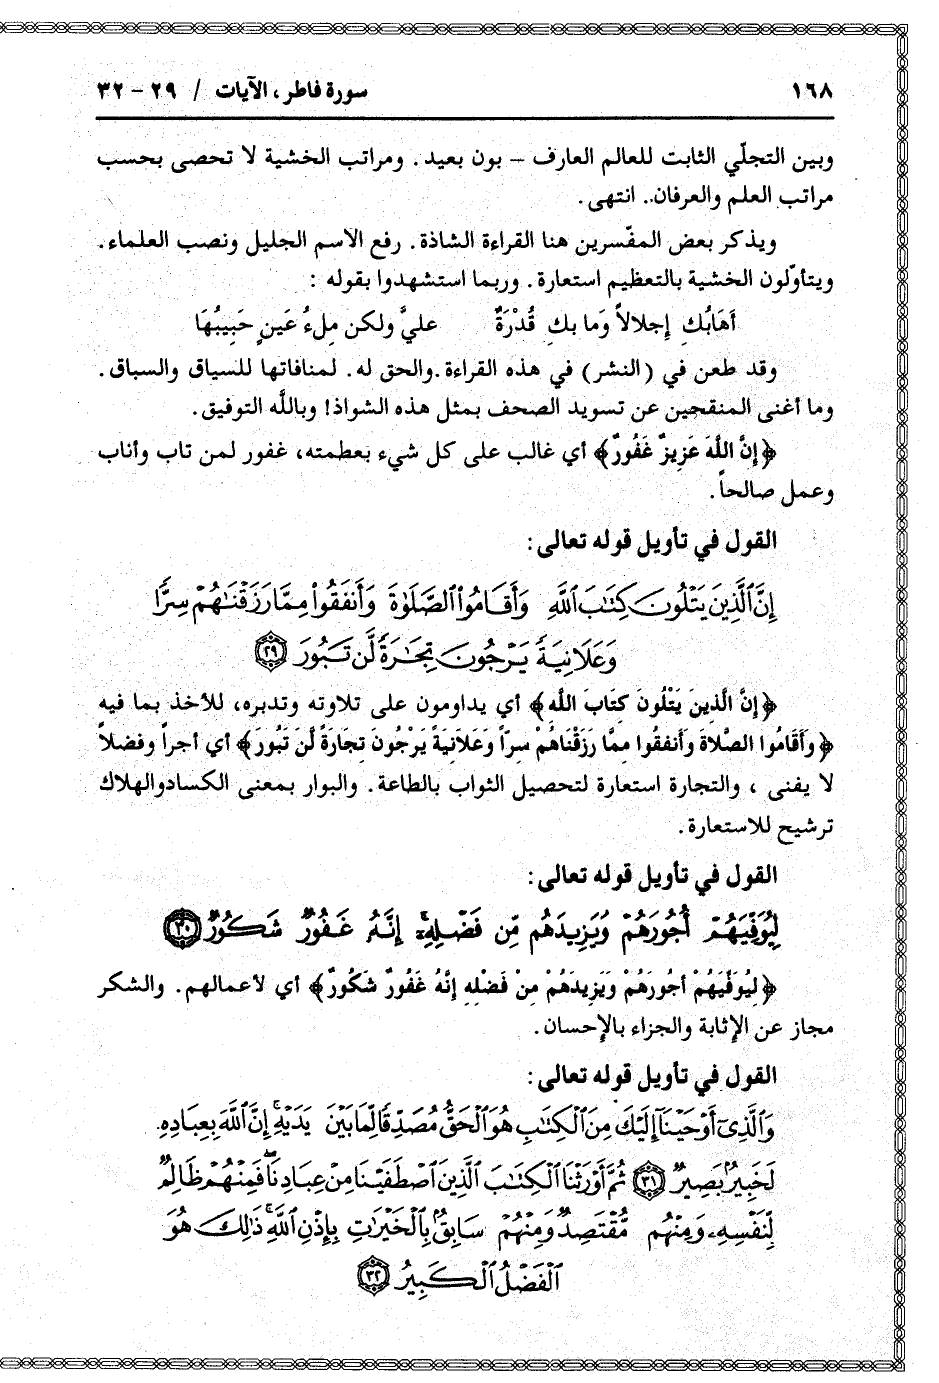 ١٦٨ سورة فاطر، الآيات / ٢٩ - ٣٢
وبين التجلّي الثابت للعالم العارف – بون بعيد. ومراتب الخشية لا تحصى بحسب
مراتب العلم والعرفان.. انتهى.
ويذكر بعض المفّسرين هنا القراءة الشاذة. رفع الاسم الجليل ونصب العلماء.
ويتأوّلون الخشية بالتعظيم استعارة. وربما استشهدوا بقوله :
أَهَابُكِ إجلالاً وَما بكِ قُدْرَةٌ عليَّ ولكن مِلءُ عَينٍ حَبِيبُهَا
وقد طعن في (النشر) في هذه القراءة.والحق له. لمنافاتها للسياق والسباق.
وما أغنى المنقحين عن تسويد الصحف بمثل هذه الشواذ! وباللَّه التوفيق.
﴿إِنَّ اللَّهَ عَزِيزٌ غَفُورٌ﴾ أي غالب على كل شيء بعظمته، غفور لمن تاب وأناب
وعمل صالحاً.
القول في تأويل قوله تعالى:
إِنَّ ٱلَّذِينَ يَتْلُونَ كِتَٰبَ ٱللَّهِ وَأَقَامُوا۟ ٱلصَّلَوٰةَ وَأَنفَقُوا۟ مِمَّا رَزَقْنَٰهُمْ سِرًّا
وَعَلَانِيَةً يَرْجُونَ تِجَٰرَةً لَّن تَبُورَ ٢٩
﴿إِنَّ الَّذِينَ يَتْلُونَ كِتَابَ اللَّه﴾ أي يداومون على تلاوته وتدبره، للأخذ بما فيه
﴿وَأَقَامُوا الصَّلاةَ وَأنفقُوا ممَّا رَزَقْنَاهُمْ سرّاً وَعَلَانِيَةً يَرْجُونَ تجَارَةً لَنْ تَبُورَ﴾ أي أجراً وفضلاً
لا يفنى ، والتجارة استعارة لتحصيل الثواب بالطاعة. والبوار بمعنى الكسادوالهلاك
ترشيح للاستعارة.
القول في تأويل قوله تعالى:
لِيُوَفِّيَهُمْ أُجُورَهُمْ وَيَزِيدَهُم مِّن فَضْلِهِۦٓ إِنَّهُۥ غَفُورٌ شَكُورٌ ٣٠
﴿لِيُوَفِّيَهُمْ أجُورَهُمْ وَيَزيدَهُمْ منْ فَضْله إنَّهُ غَفُورٌ شَكُورٌ﴾ أي لأعمالهم. والشكر
مجاز عن الإثابة والجزاء بالإحسان.
القول في تأويل قوله تعالى:
وَٱلَّذِىٓ أَوْحَيْنَآ إِلَيْكَ مِنَ ٱلْكِتَٰبِ هُوَ ٱلْحَقُّ مُصَدِّقًا لِّمَا بَيْنَ يَدَيْهِ ۗ إِنَّ ٱللَّهَ بِعِبَادِهِۦ
لَخَبِيرٌۢ بَصِيرٌ ٣١ ثُمَّ أَوْرَثْنَا ٱلْكِتَٰبَ ٱلَّذِينَ ٱصْطَفَيْنَا مِنْ عِبَادِنَا ۖ فَمِنْهُمْ ظَالِمٌ
لِّنَفْسِهِۦ وَمِنْهُم مُّقْتَصِدٌ وَمِنْهُمْ سَابِقٌۢ بِٱلْخَيْرَٰتِ بِإِذْنِ ٱللَّهِ ۚ ذَٰلِكَ هُوَ
ٱلْفَضْلُ ٱلْكَبِيرُ ٣٢